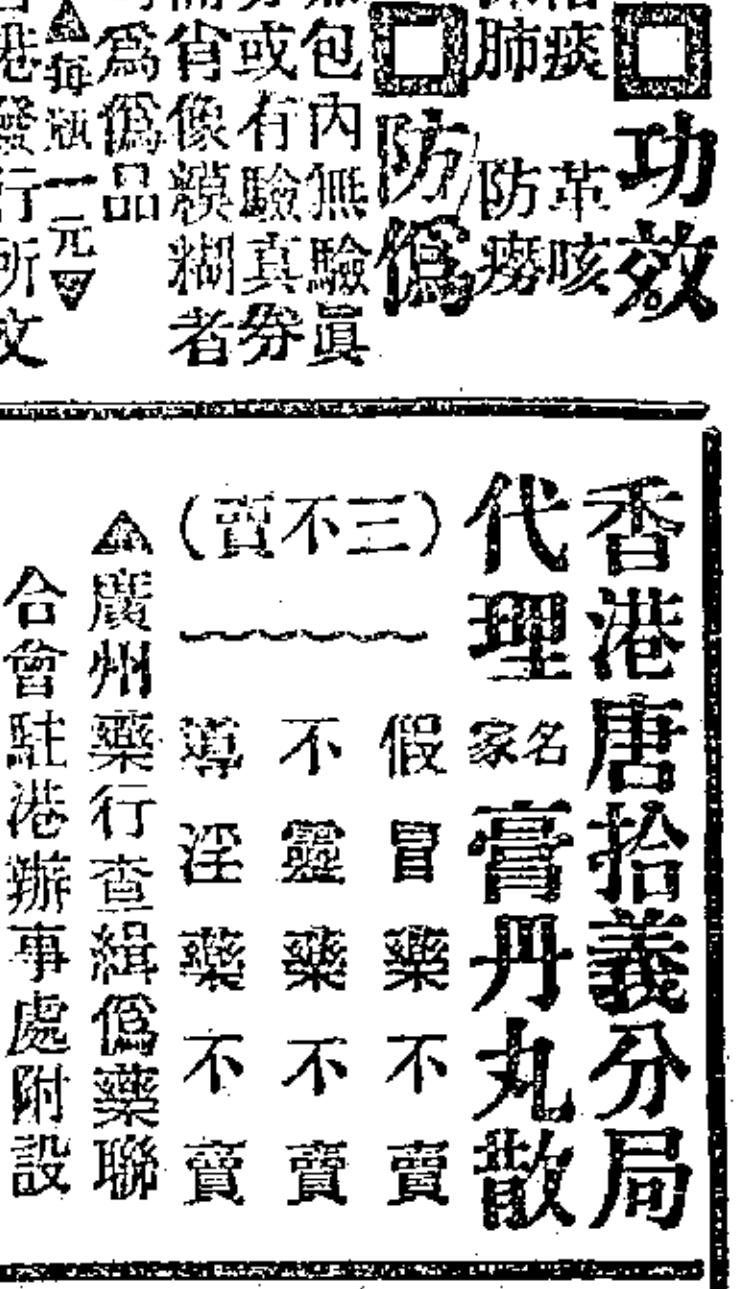 功效
痰 革咳
肺 防癆
防僞
包內無驗眞
或有驗真券
肖像糢糊者
爲僞品
每瓶一元
港發行所文
香港唐拾義分局
代理名家膏丹丸散
(三不賣)
假冒藥不賣
不靈藥不賣
導淫藥不賣
廣州藥行查緝僞藥聯
合會駐港辦事處附設